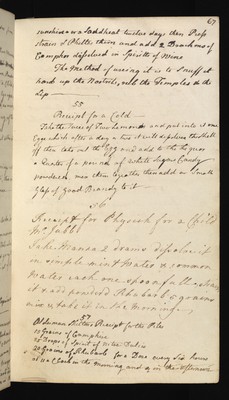 67
sunshine or a Sand heat twelve days then Press
strain & Philter them and add 2 Drachms of
Camphor dissolved in Spirits of Wine
The Method of using it is to Snuff it
hard up the Nostrils, rub the Temples & the
Lip
55
Receipt for a Cold
Take the Juice of Two Lemons and put into it one
Egg which after a day or two it will dissolve the Shell
off then take out the Egg and add to the liquor
a Quarter of a pound of white Sugar Candy
powdered mix them together then add a Small
Glass of Good Brandy to it
56
Receipt for Physick for a Child
Mr Jubb
Take Manna 2 drams dissolve it
in simple mint Water & common
Water each one spoonfull, strain
it & add powdered Rhubarb 5 grains
mix & take it in the morning
57
Receipt for the Piles
10 Grains of Camphire
25 Drops of Spirit of Nitre Dulcis
20 Grains of Rhubarb for a Dose every Six hours
at 11 o'Clock in the morning and 9 in the Afternoon